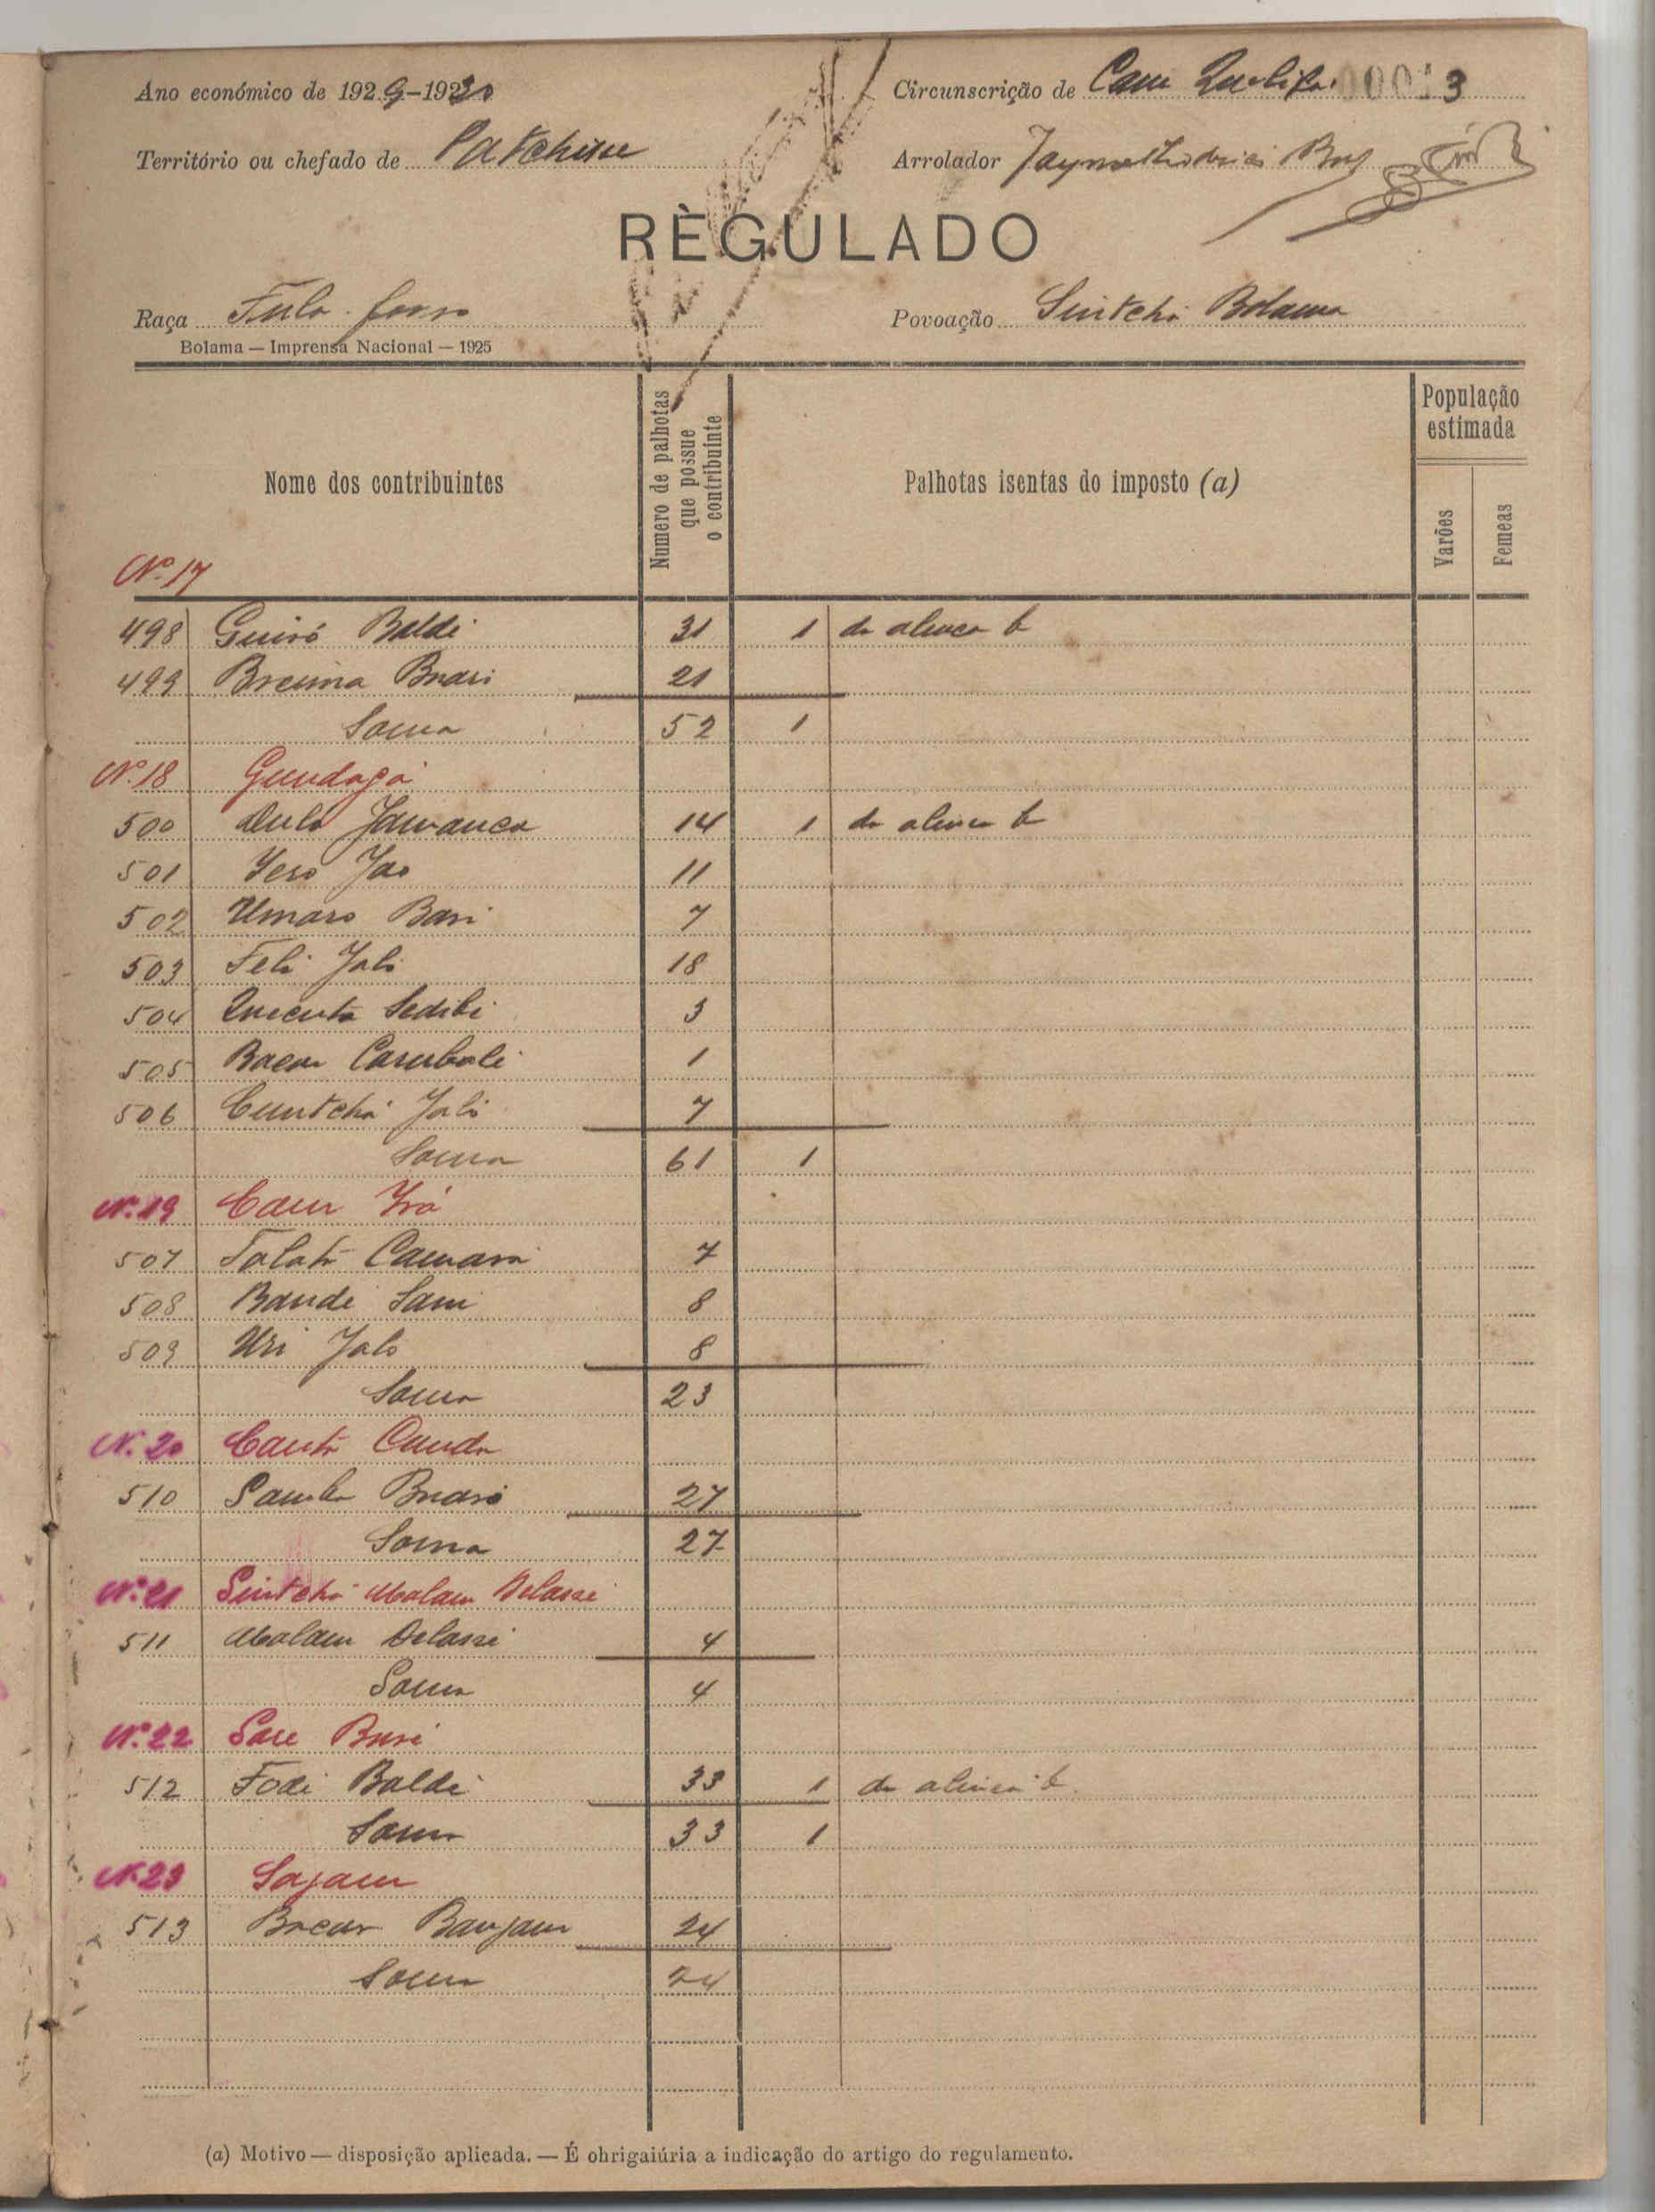 Ano económico de 1929-1930
Circunscrição de Cam Quelifá 00013
Território ou chefado de Patchisse
Arrolador
RÈGULADO
Raça Fula-forro
Povoação Sintchã Bolama
Bolama — Imprensa Nacional — 1925
Nome dos contribuintes
Numero de palhotas que possue o contribuinte
Palhotas isentas do imposto (a)
População estimada
Varões
Femeas
Nº 17
498 Guiró Baldé 31 1 da alinea b
499 Breima Buari 21
Soma 52 1
Nº 18 Gundagá
500 Dulo Jauanca 14 1 da alinea b
501 Iero Jao 11
502 Umaro Bari 7
503 Feli Jaló 18
504 Quecuta Sedibi 3
505 Bacar Carubali 1
506 Cuntchá Jaló 7
Soma 61 1
Nº 19 Cam Iró
507 Talató Camara 7
508 Bande Sani 8
509 Uri Jaló 8
Soma 23
Nº 20 Cantá Cunda
510 Samba Buaró 27
Soma 27
Nº 21 Sintchã Malam
511 Malam 4
Soma 4
Nº 22 Sare Buri
512 Fodé Baldé 33 1 da alinea b.
Soma 33 1
Nº 23 Sajam
513 Bacar Banjam 24
Soma 24
(a) Motivo — disposição aplicada. — É obrigaiúria a indicação do artigo do regulamento.